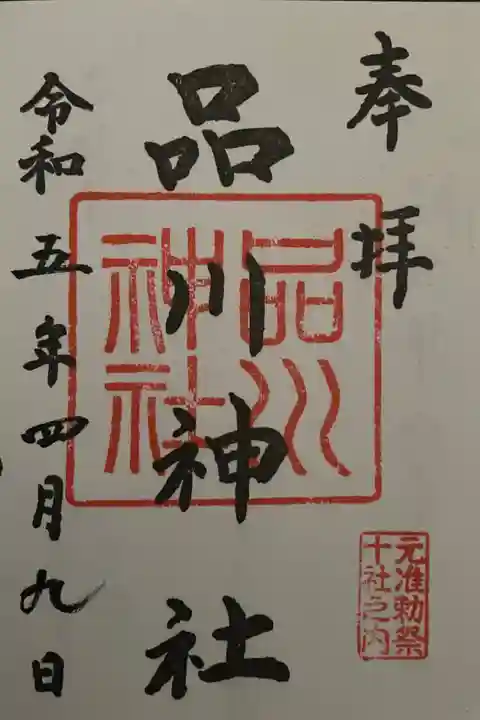 奉拝
品川神社
品川
神社
元准勅祭
十社之内
令和五年四月九日